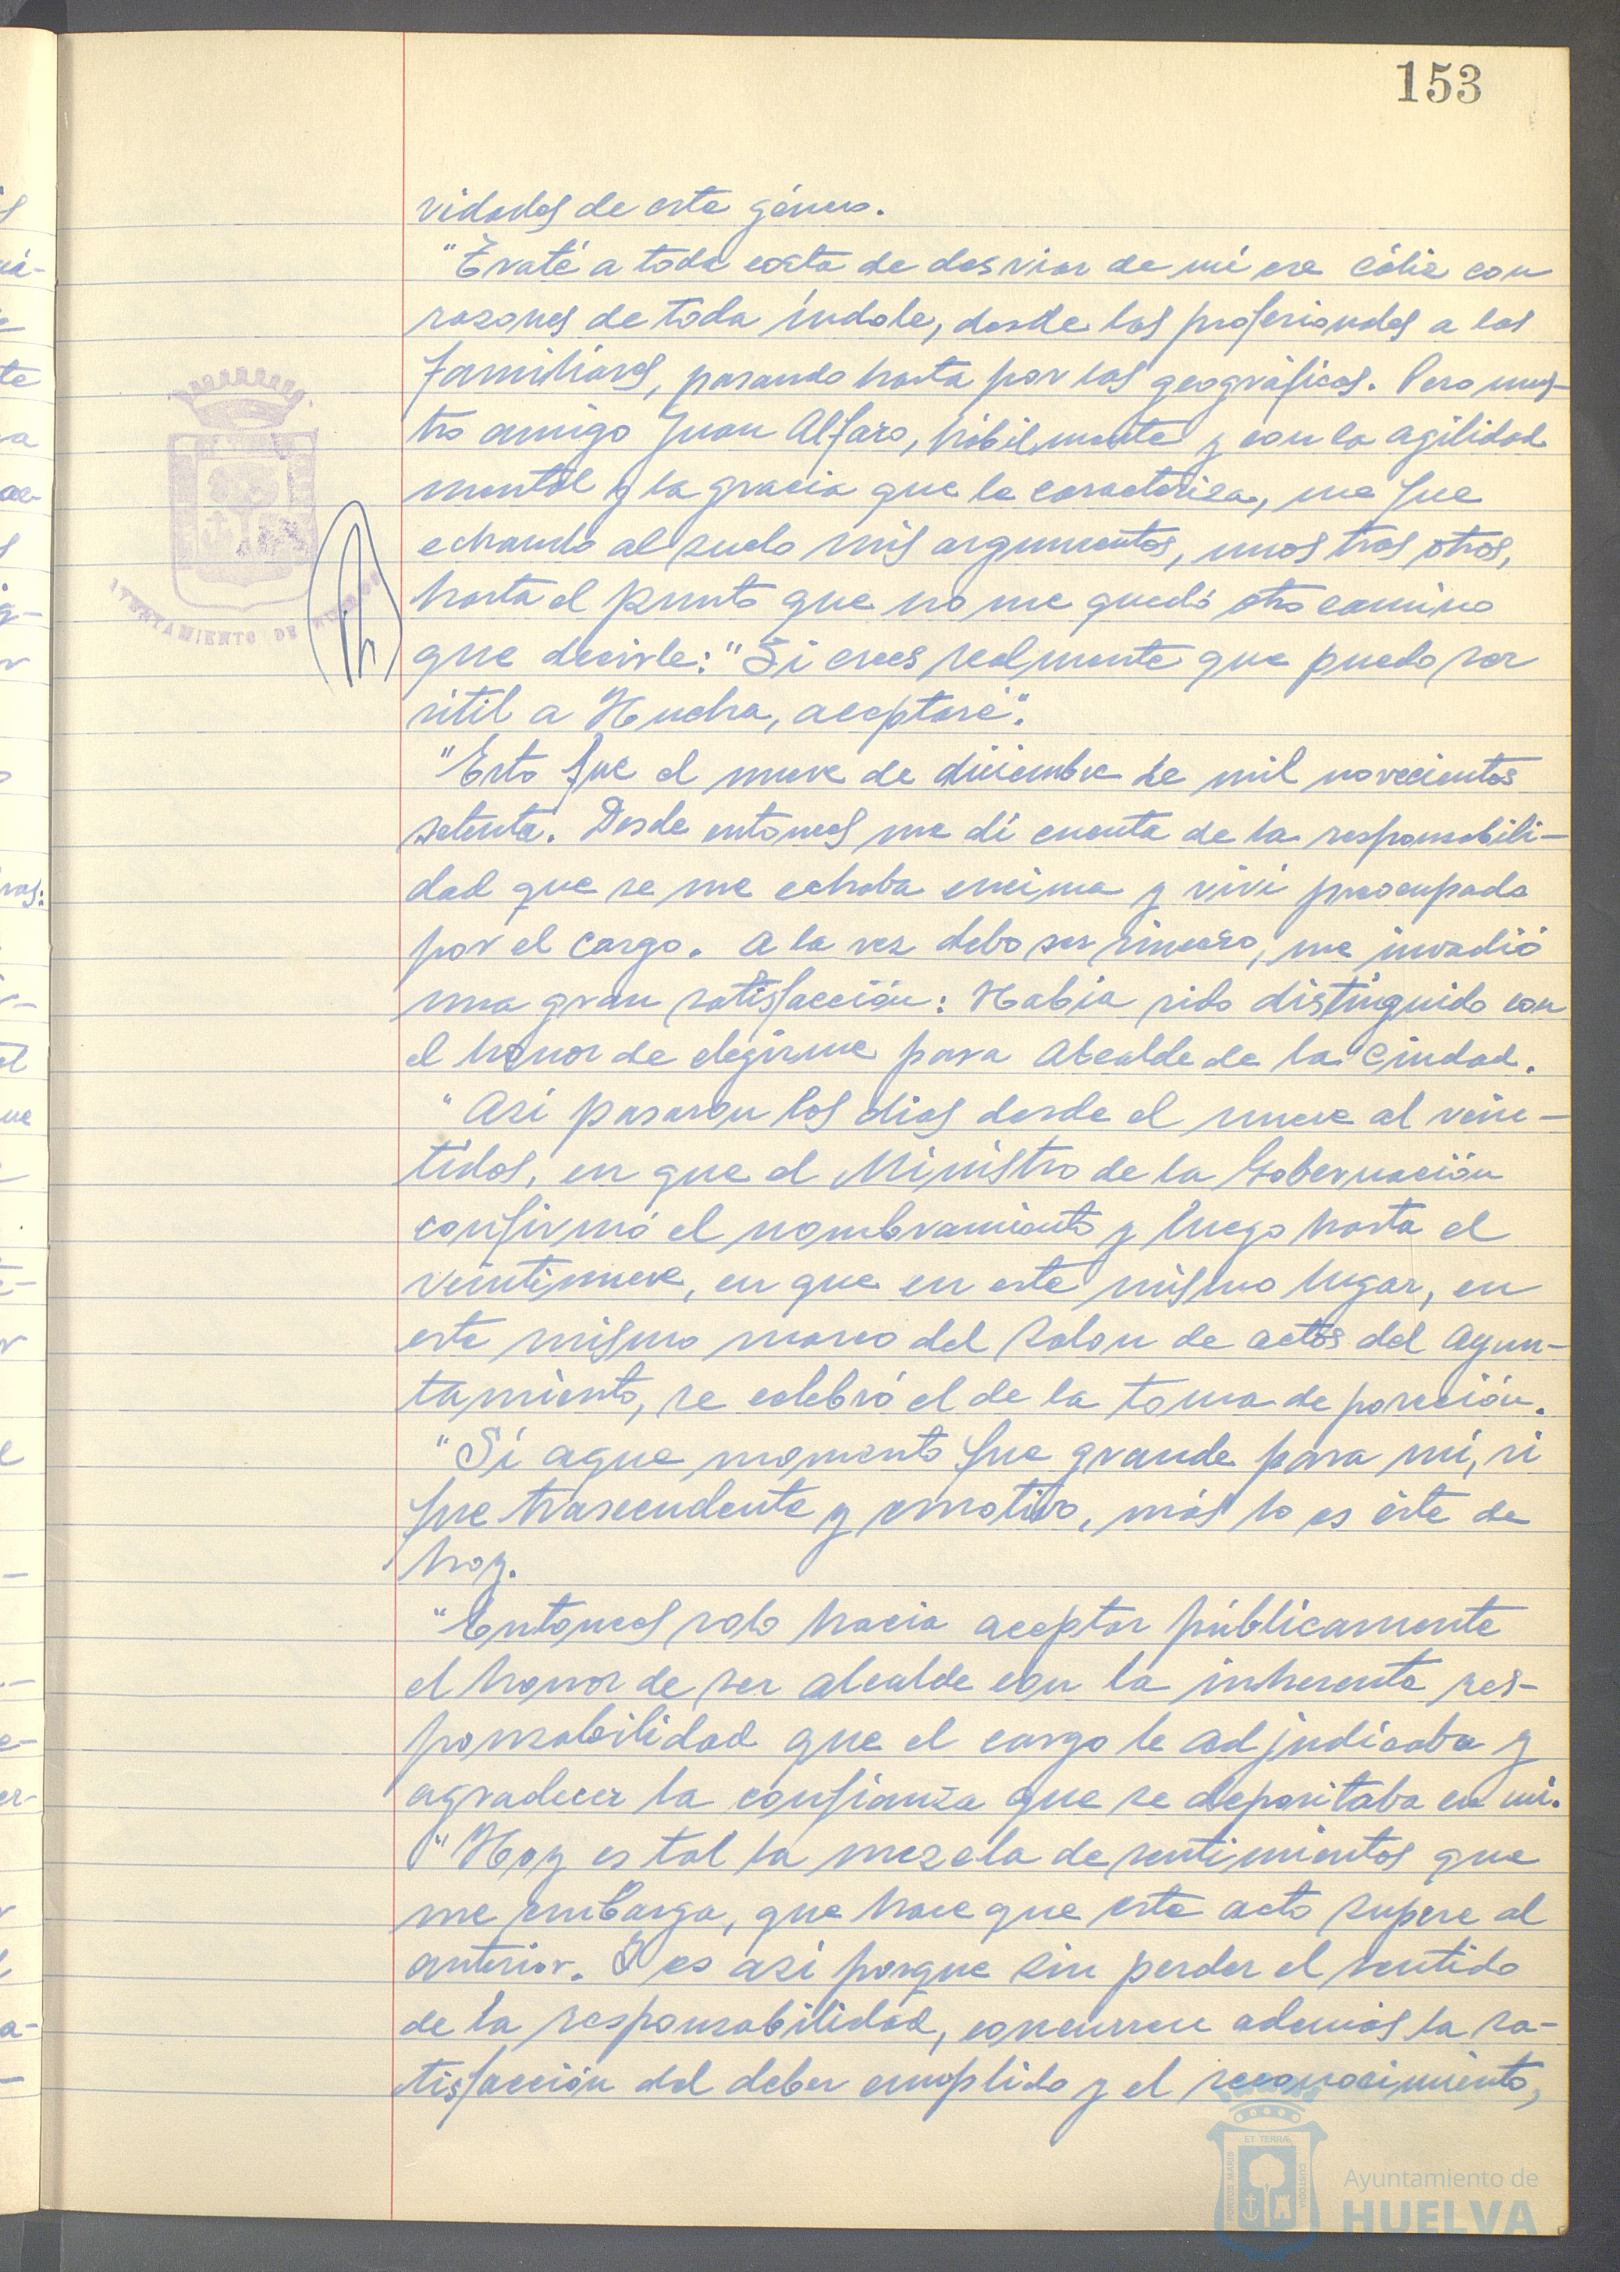 153
vidades de este género.
"Traté a toda costa de desviar de mí ese cáliz con
razones de toda índole, desde las profesionales a las
familiares, pasando hasta por las geográficas. Pero nues-
tro amigo Juan Alfaro, hábilmente y con la agilidad
mental y la gracia que le caracteriza, me fue
echando al suelo mis argumentos, unos tras otros,
hasta el punto que no me quedó otro camino
que decirle: "Si crees realmente que puedo ser
útil a Huelva, aceptaré".
"Esto fue el nueve de diciembre de mil novecientos
setenta. Desde entonces me dí cuenta de la responsabili-
dad que se me echaba encima y viví preocupado
por el cargo. A la vez debo ser sincero, me invadió
una gran satisfacción: Había sido distinguido con
el honor de elegirme para Alcalde de la Ciudad.
"Así pasaron los días desde el nueve al vein-
tidos, en que el Ministro de la Gobernación
confirmó el nombramiento y luego hasta el
veintinueve, en que en este mismo lugar, en
este mismo marco del salon de actos del Ayun-
tamiento, se celebró el de la toma de posesión.
"Si aque momento fue grande para mí, si
fue trascendente y emotivo, más lo es éste de
hoy.
"Entonces solo hacia aceptar públicamente
el honor de ser alcalde con la inherente res-
ponsabilidad que el cargo le adjudicaba y
agradecer la confianza que se depositaba en mí.
"Hoy es tal la mezcla de sentimientos que
me embarga, que hace que este acto supere al
anterior. Y es así porque sin perder el sentido
de la responsabilidad, concurren además la sa-
tisfacción del deber cumplido y el reconocimiento,
AYUNTAMIENTO DE HUELVA
PORTUS MARIS
ET TERRÆ
CUSTODIA
Ayuntamiento de
HUELVA